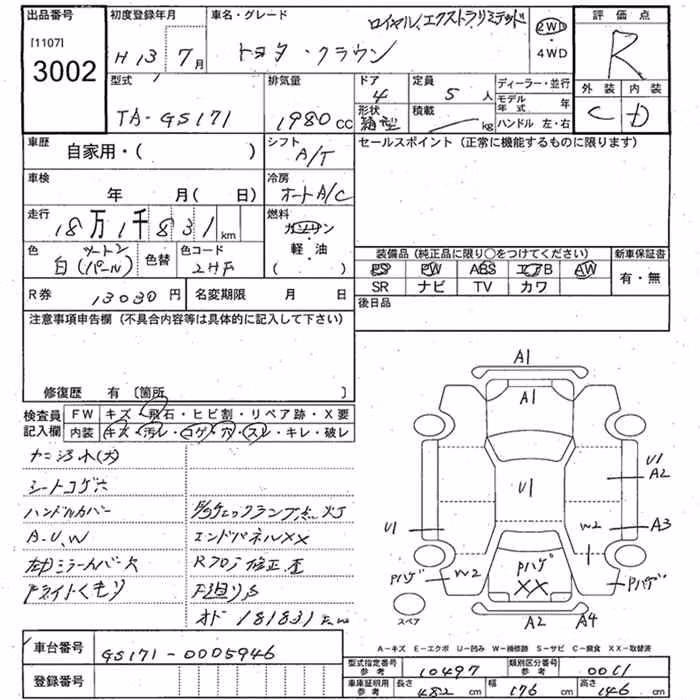 出品番号 初度登録年月 車名・グレード ロイヤルエクストラリミテッド 2WD 評価点
[1107] ・
3002 H 13 7月 トヨタ・クラウン 4WD R
型式 排気量 ドア 定員 ディーラー・並行 外装 内装
4 5 人 モデル年式 年 C D
TA-GS171 1980 cc 形状 箱型 積載 kg ハンドル 左・右
車歴 シフト セールスポイント (正常に機能するものに限ります)
自家用・( ) A/T
車検 冷房
年 月( 日) オートA/C
走行 燃料
18万1千831 km ガソリン
色 ツートン 色替 色コード 軽・油 装備品 (純正品に限り○をつけてください) 新車保証書
白(パール) 2HF ( ) PS PW ABS エアB AW 有・無
SR ナビ TV カワ
R券 13030 円 名変期限 月 日 後日品
注意事項申告欄 (不具合内容等は具体的に記入して下さい)
修復歴 有 〔箇所 〕
検査員 FW キズ・飛石・ヒビ割・リペア跡・X要
記入欄 内装 キズ・汚レ・コゲ・穴・スレ・キレ・破レ
シートコゲ穴
ハンドルカバー
A.U.W エンドパネルXX
左右ミラーカバー欠 Rフロア修正歪
F廻りS
オド 181831
A1
A1
U1
U1
A2
U1
W2
A3
Pハゲ
W2
Pハゲ
XX
Pハゲ
A2
A4
スペア
A-キズ E-エクボ U-凹み W-補修跡 S-サビ C-腐食 XX-取替済
車台番号 GS171-0005946
型式指定番号 参考 10497 類別区分番号 参考
登録番号 車庫証明用 参考 長さ 482 cm 幅 176 cm 高さ 146 cm